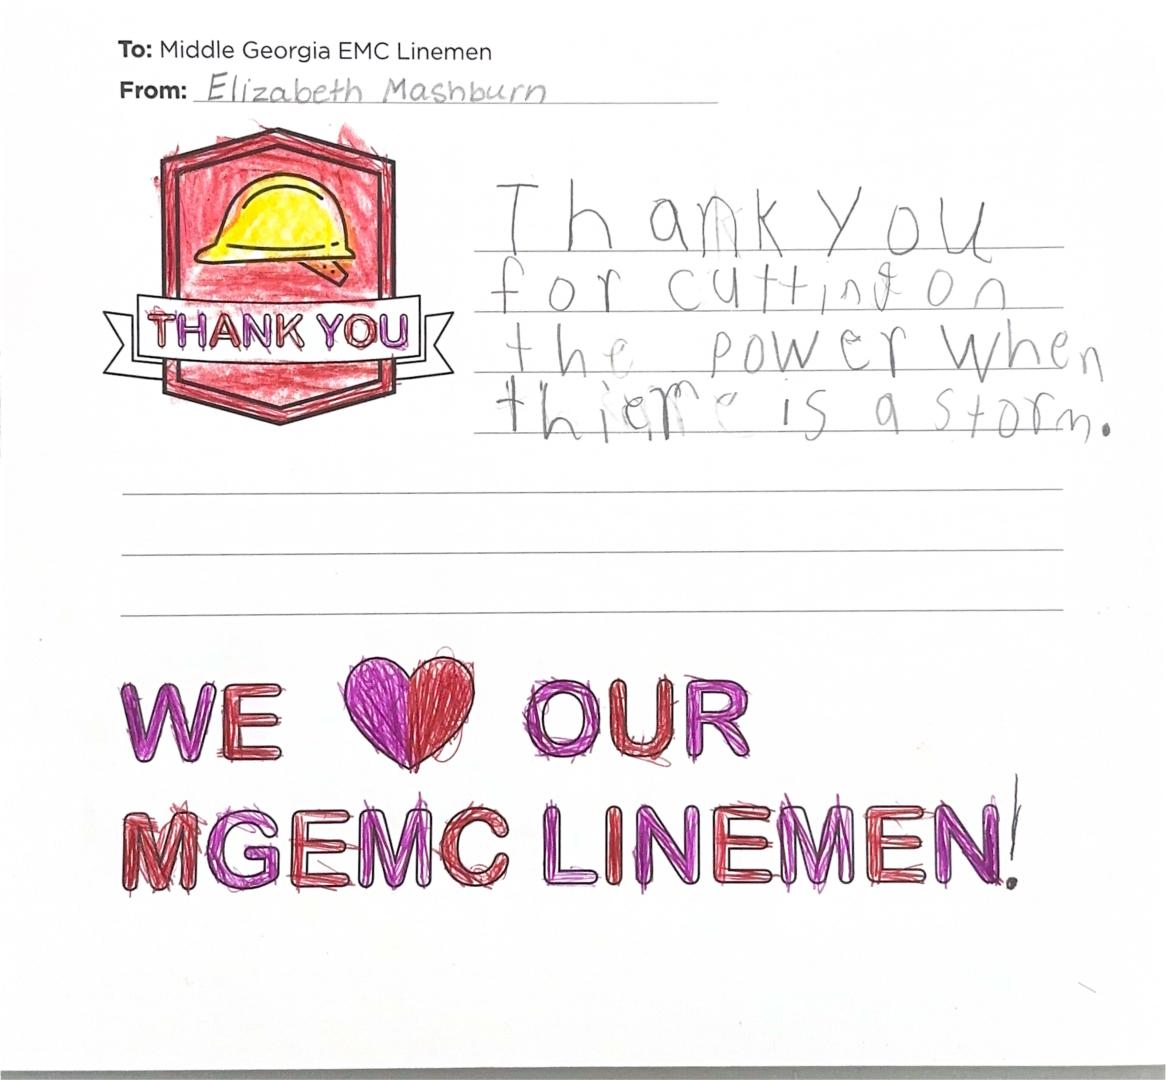 To: Middle Georgia EMC Linemen
From: Elizabeth Mashburn
THANK YOU
Thank you
for cutting on
the power when
is a storm.
WE OUR
MGEMC LINEMEN!